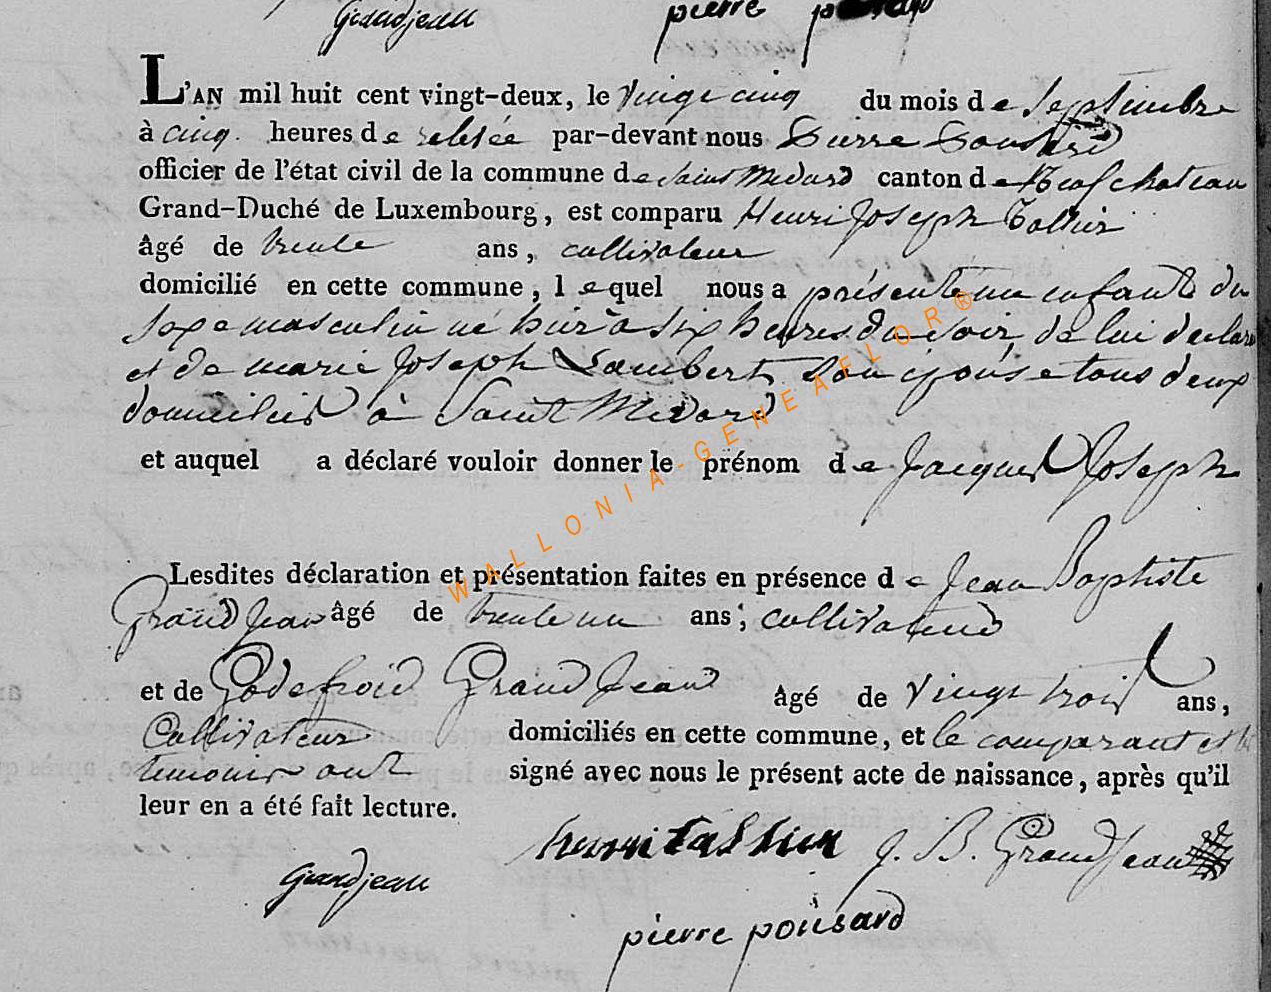 Grandjean pierre pousard
L'AN mil huit cent vingt-deux, le vingt cinq du mois de septembre
à cinq heures de relevée par-devant nous Pierre Pousard
officier de l'état civil de la commune de saint Medard canton de Neufchateau
Grand-Duché de Luxembourg, est comparu Henri Joseph
âgé de trente ans, cultivateur
domicilié en cette commune, lequel nous a présenté un enfant du
sexe masculin né hier à six heures du soir, de lui declarant
et de marie Joseph Lambert son epouse tous deux
domiciliés à Saint Medard
et auquel a déclaré vouloir donner le prénom de Jacques Joseph
Lesdites déclaration et présentation faites en présence de Jean Baptiste
GrandJean âgé de trente un ans; cultivateur
et de Godefroid GrandJean âgé de vingt trois ans,
Cultivateur domiciliés en cette commune, et le comparant et les
temoins ont signé avec nous le présent acte de naissance, après qu'il
leur en a été fait lecture.
henri tashien J. B. GrandJean
Grandjean
pierre pousard
WALLONIA-GENEAFLOR®